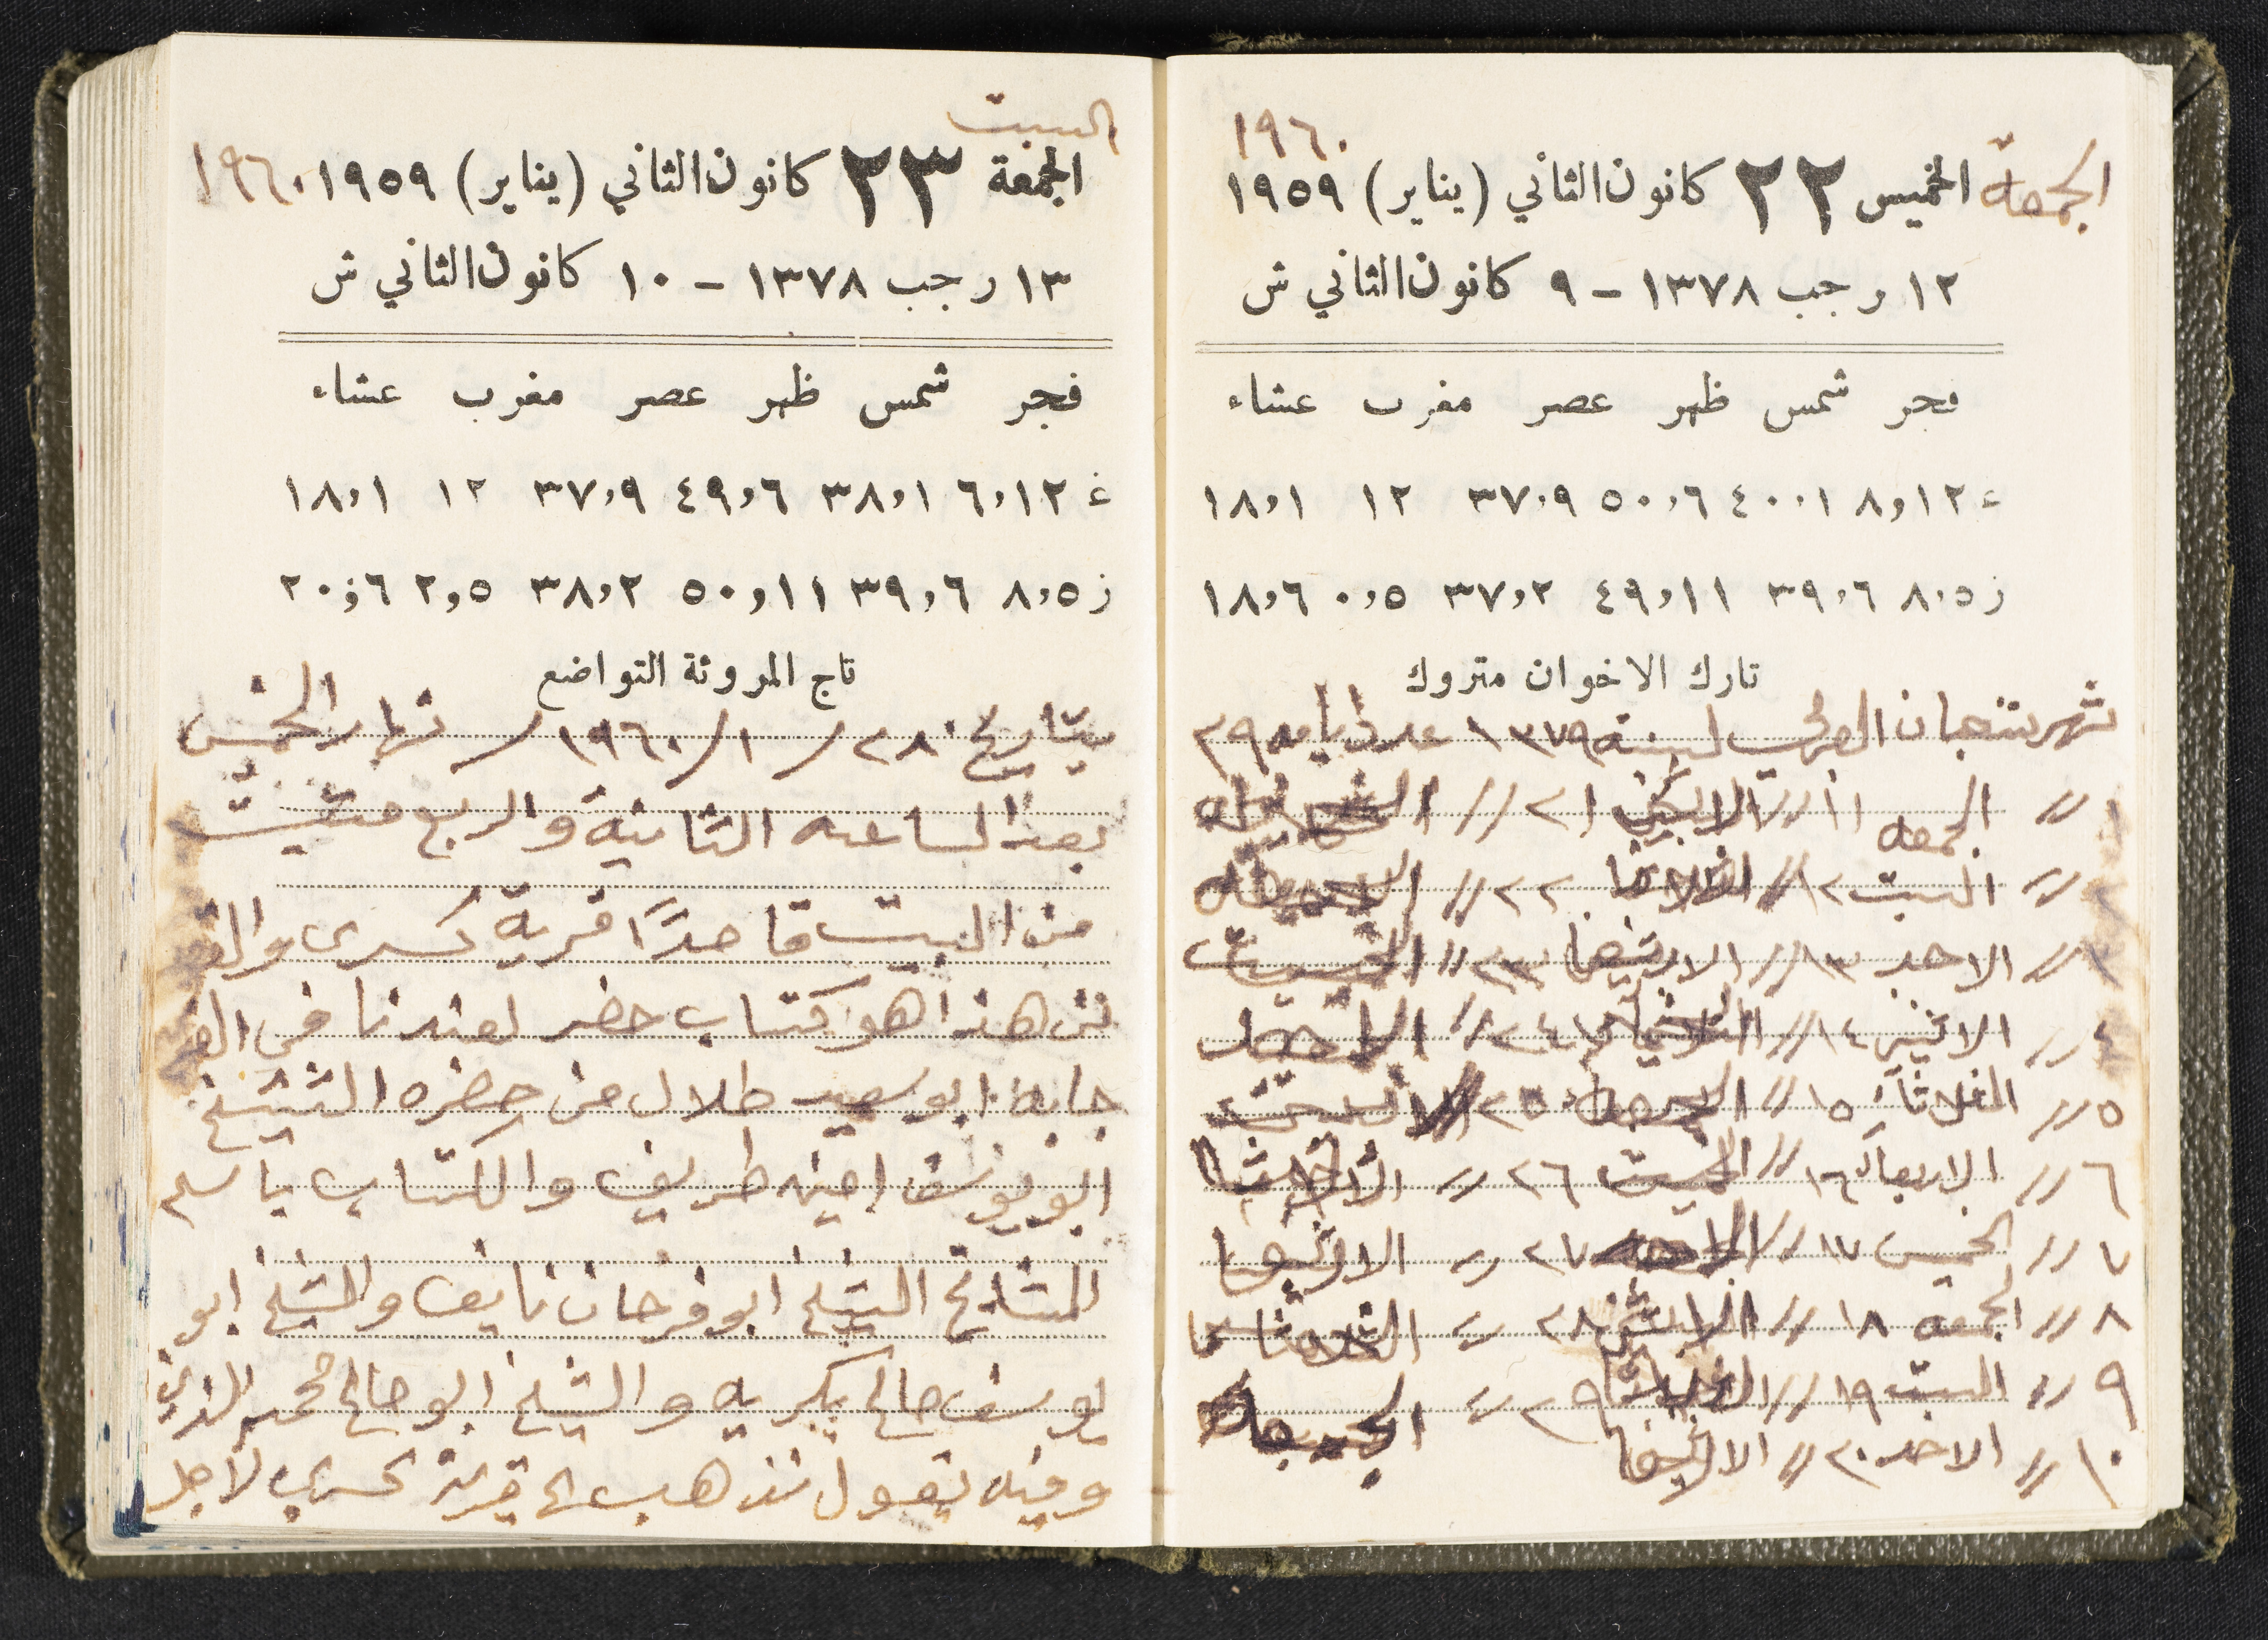 ١٩٦٠
الجمعة الخميس ٢٢ كانون الثاني (يناير) ١٩٥٩
١٢ رجب ١٣٧٨ - ٩ كانون الثاني ش
فجر شمس ظهر عصر مغرب عشاء
ع ٨،١٢ ٤٠،١ ٥٠،٦ ٣٧،٩ ١٢ ١٨،١
ز ٨،٥ ٣٩،٦ ٤٩،١١ ٣٧،٢ ٠،٥ ١٨،٦
تارك الاخوان متروك
شهر شعبان العربي لسنة ١٣٧٩ عدد ايامه ٢٩
١ // الجمعه ١١ // الاثنين ٢١ //
٢ // السبت ١٢ // الثلاثا ٢٢ //
٣ // الاحد ١٣ // الاربعا ٢٣ //
٤ // الاثنين ١٤ // ٢٤ //
٥ // الثلاثاء ١٥ // الجمعه ٢٥ //
٦ // الاربعاء ١٦ // السبت ٢٦ //
٧ // الخميس ١٧ // الاحد ٢٧ // الاربعا
٨ // الجمعه ١٨ // الاثنين ٢٨ //
٩ // السبت ١٩ // الثلاثا ٢٩ // الجمعه
١٠ // الاحد ٢٠ // الاربعا
السبت
الجمعة ٢٣ كانون الثاني (يناير) ١٩٥٩ ١٩٦٠
١٣ رجب ١٣٧٨ - ١٠ كانون الثاني ش
فجر شمس ظهر عصر مغرب عشاء
غ ٦،١٢ ٣٨،١ ٤٩،٦ ٣٧،٩ ١٢ ١٨،١
ز ٨،٥ ٣٩،٦ ٥٠،١١ ٣٨،٢ ٢،٥ ٢٠،٦
تاج المروئة التواضع
بتاريخ ٢٨ / ١ / ١٩٦٠ / نهار الخميس
بعد الساعه الثانية والربع مشيت
من البيت قاصدًا قرية كسرى
من هذا هو كتاب حضر لعندنا في
جابه ابو سعيد طلال من حضره الشيخ
ابو يوسف امين طريف والكتاب باسم
المشايخ الشيخ ابو فرحان نايف والشيخ ابو
يوسف صالح بكريه والشيخ ابو صالح محمد الذي
وفيه يقول نذهب الى قرية كسرى لأجل